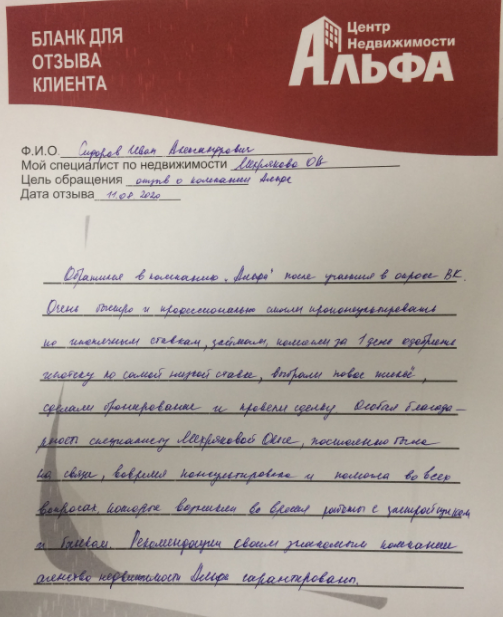 БЛАНК ДЛЯ
ОТЗЫВА
КЛИЕНТА
Центр
Недвижимости
АЛЬФА
Ф.И.О. Сидоров Иван Александрович
Мой специалист по недвижимости Мехрякова ОВ
Цель обращения отзыв о компании Альфа
Дата отзыва 11.08.2020
Обратился в компанию "Альфа" после участия в опросе ВК.
Очень быстро и профессионально смогли проконсультировать
по ипотечным ставкам, займам, помогли за 1 день одобрить
ипотеку по самой низкой ставке, выбрали новое жильё,
сделали бронирование и провели сделку. Особая благода-
рность специалисту Мехряковой Ольге, постоянно была
на связи, вовремя консультировала и помогла во всех
вопросах, которые возникали во время работы с застройщиком
и банком. Рекомендации своим знакомым компании
агенство недвижимости Альфа гарантированы.